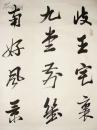 岐王宅裏
九堂前幾
南好風景